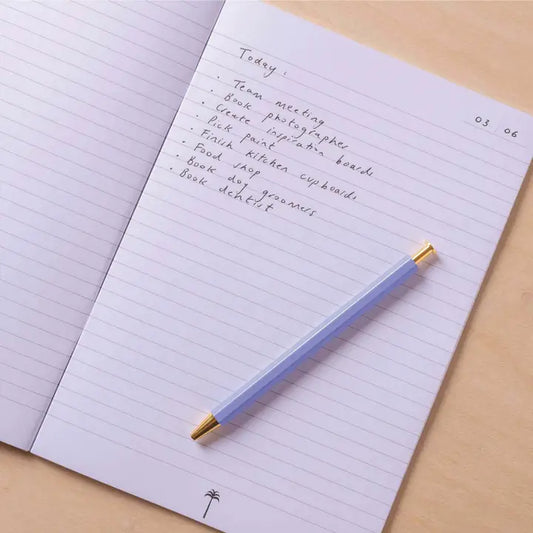 03 . 06
Today :
. Team meeting
. Book photographer
. Create inspiration boards
. Pick paint
. Finish kitchen cupboards
. Food shop
. Book dog groomers
. Book dentist